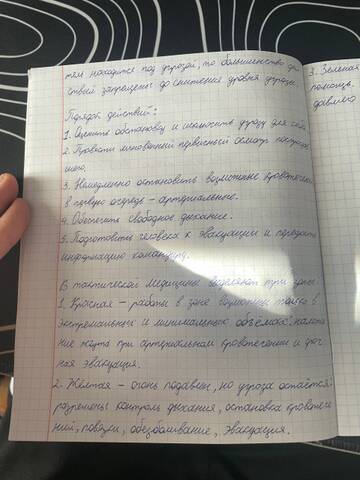 тем находится под угрозой, то большинство де
ствий запрещены до снижения уровня угрозы.
Порядок действий:
1. Оценить обстановку и исключить угрозу для себя
2. Провести мгновенный первичный осмотр пострадав
шего.
3. Немедленно остановить возможные кровотечения
в первую очередь - артериальные.
4. Обеспечить свободное дыхание.
5. Подготовить человека к эвакуации и передать
информацию командиру.
В тактической медицине выделяют три зоны:
1. Красная - работы в зоне возможны только в
экстремальных и минимальных объёмах: наложе
ние жгута при артериальном кровотечении и
ная эвакуация.
2. Жёлтая - огонь подавлен, но угроза остаётся:
разрешены контроль дыхания, остановка кровотече
ний, повязки, обезболивание, эвакуация.
3. Зеленая
помощь.
давлено